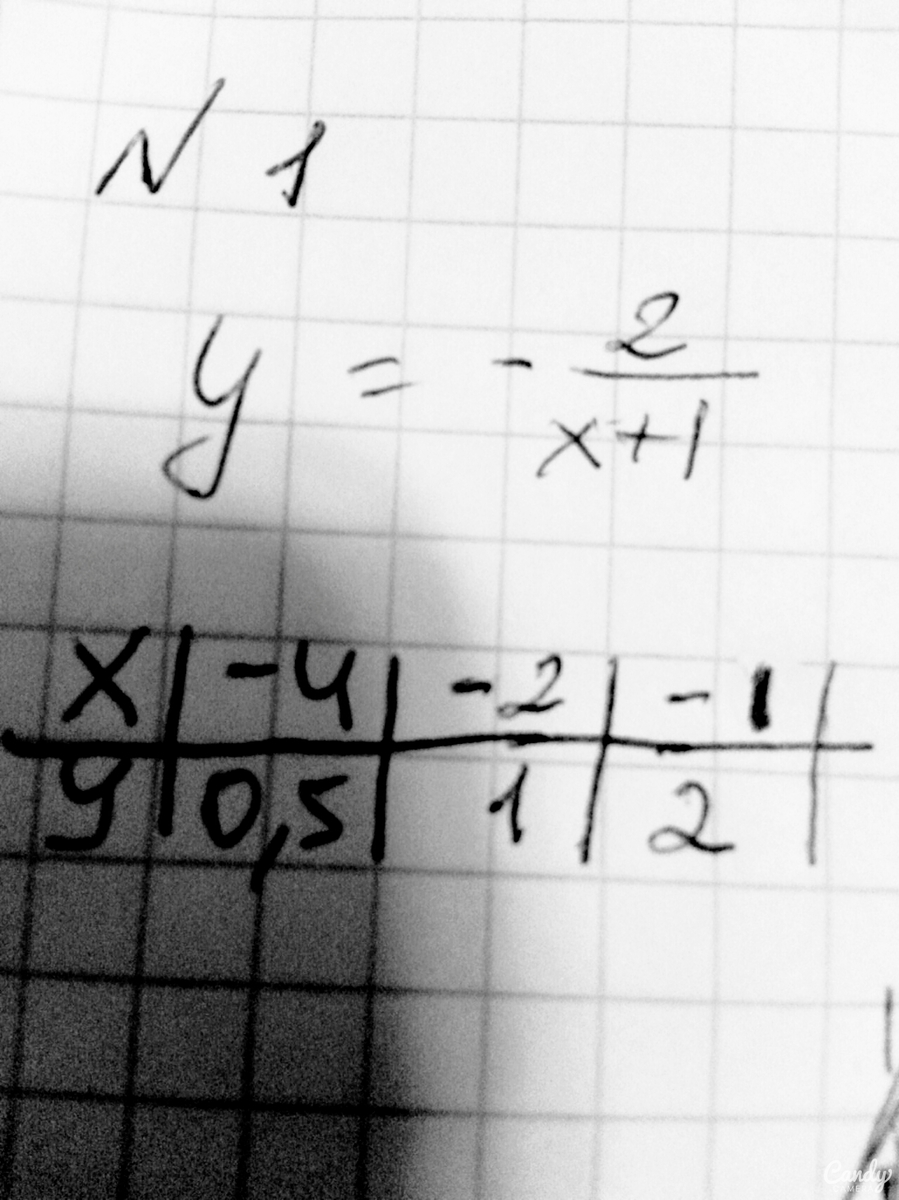 N 1
y = - 2/(x+1)
X | -4 | -2 | -1 |
y | 0,5 | 1 | 2 |
Candy